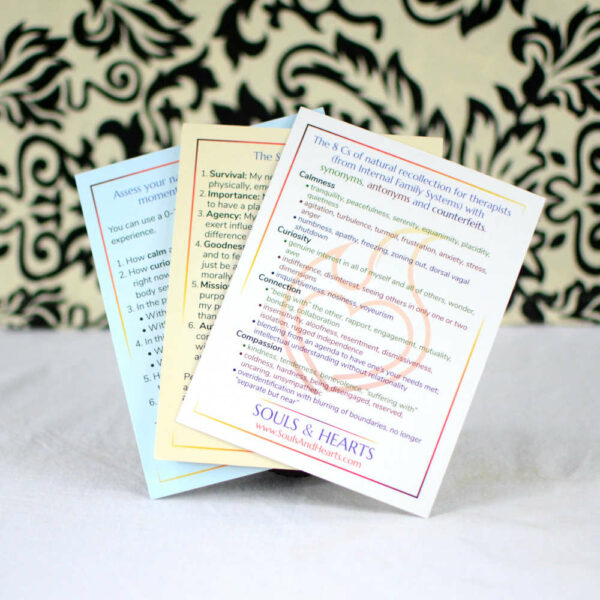 Assess your na
momen
You can use a 0-
experience.
1. How calm a
2. How curio
right now
body se
3. In the p
• With
• Wit
• W
4. H
5. H
6.
The 8
1. Survival: My ne
physically, em
2. Importance: M
to have a pla
3. Agency: My
exert influe
difference
4. Goodness
and to fe
just be a
morally
5. Missio
purpo
my p
than
6. Au
Pe
The 8 Cs of natural recollection for therapists
(from Internal Family Systems) with
synonyms, antonyms and counterfeits.
Calmness
• tranquility, peacefulness, serenity, equanimity, placidity,
quietness
• agitation, turbulence, turmoil, frustration, anxiety, stress,
anger
• numbness, apathy, freezing, zoning out, dorsal vagal
shutdown
Curiosity
• genuine interest in all of myself and all of others, wonder,
awe
• indifference, disinterest, seeing others in only one or two
dimensions
• inquisitiveness, nosiness, voyeurism
Connection
• "being with" the other, rapport, engagement, mutuality,
bonding, collaboration
• insensitivity, aloofness, resentment, dismissiveness,
isolation, rugged independence
• blending from an agenda to have one's your needs met;
intellectual understanding without relationality
Compassion
• kindness, tenderness, benevolence, "suffering with"
• coldness, hardness, being disengaged, reserved,
uncaring, unsympathetic
• overidentification with blurring of boundaries, no longer
"separate but near"
SOULS & HEARTS
www.SoulsAndHearts.com